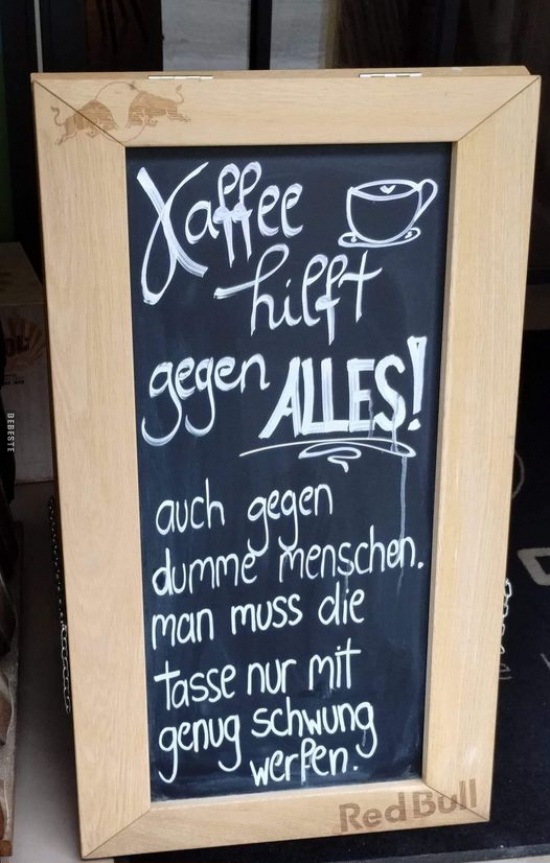 Kaffee
hilft
gegen ALLES!
auch gegen
dumme menschen.
man muss die
tasse nur mit
genug schwung
werfen.
RedBull
DEBESTE